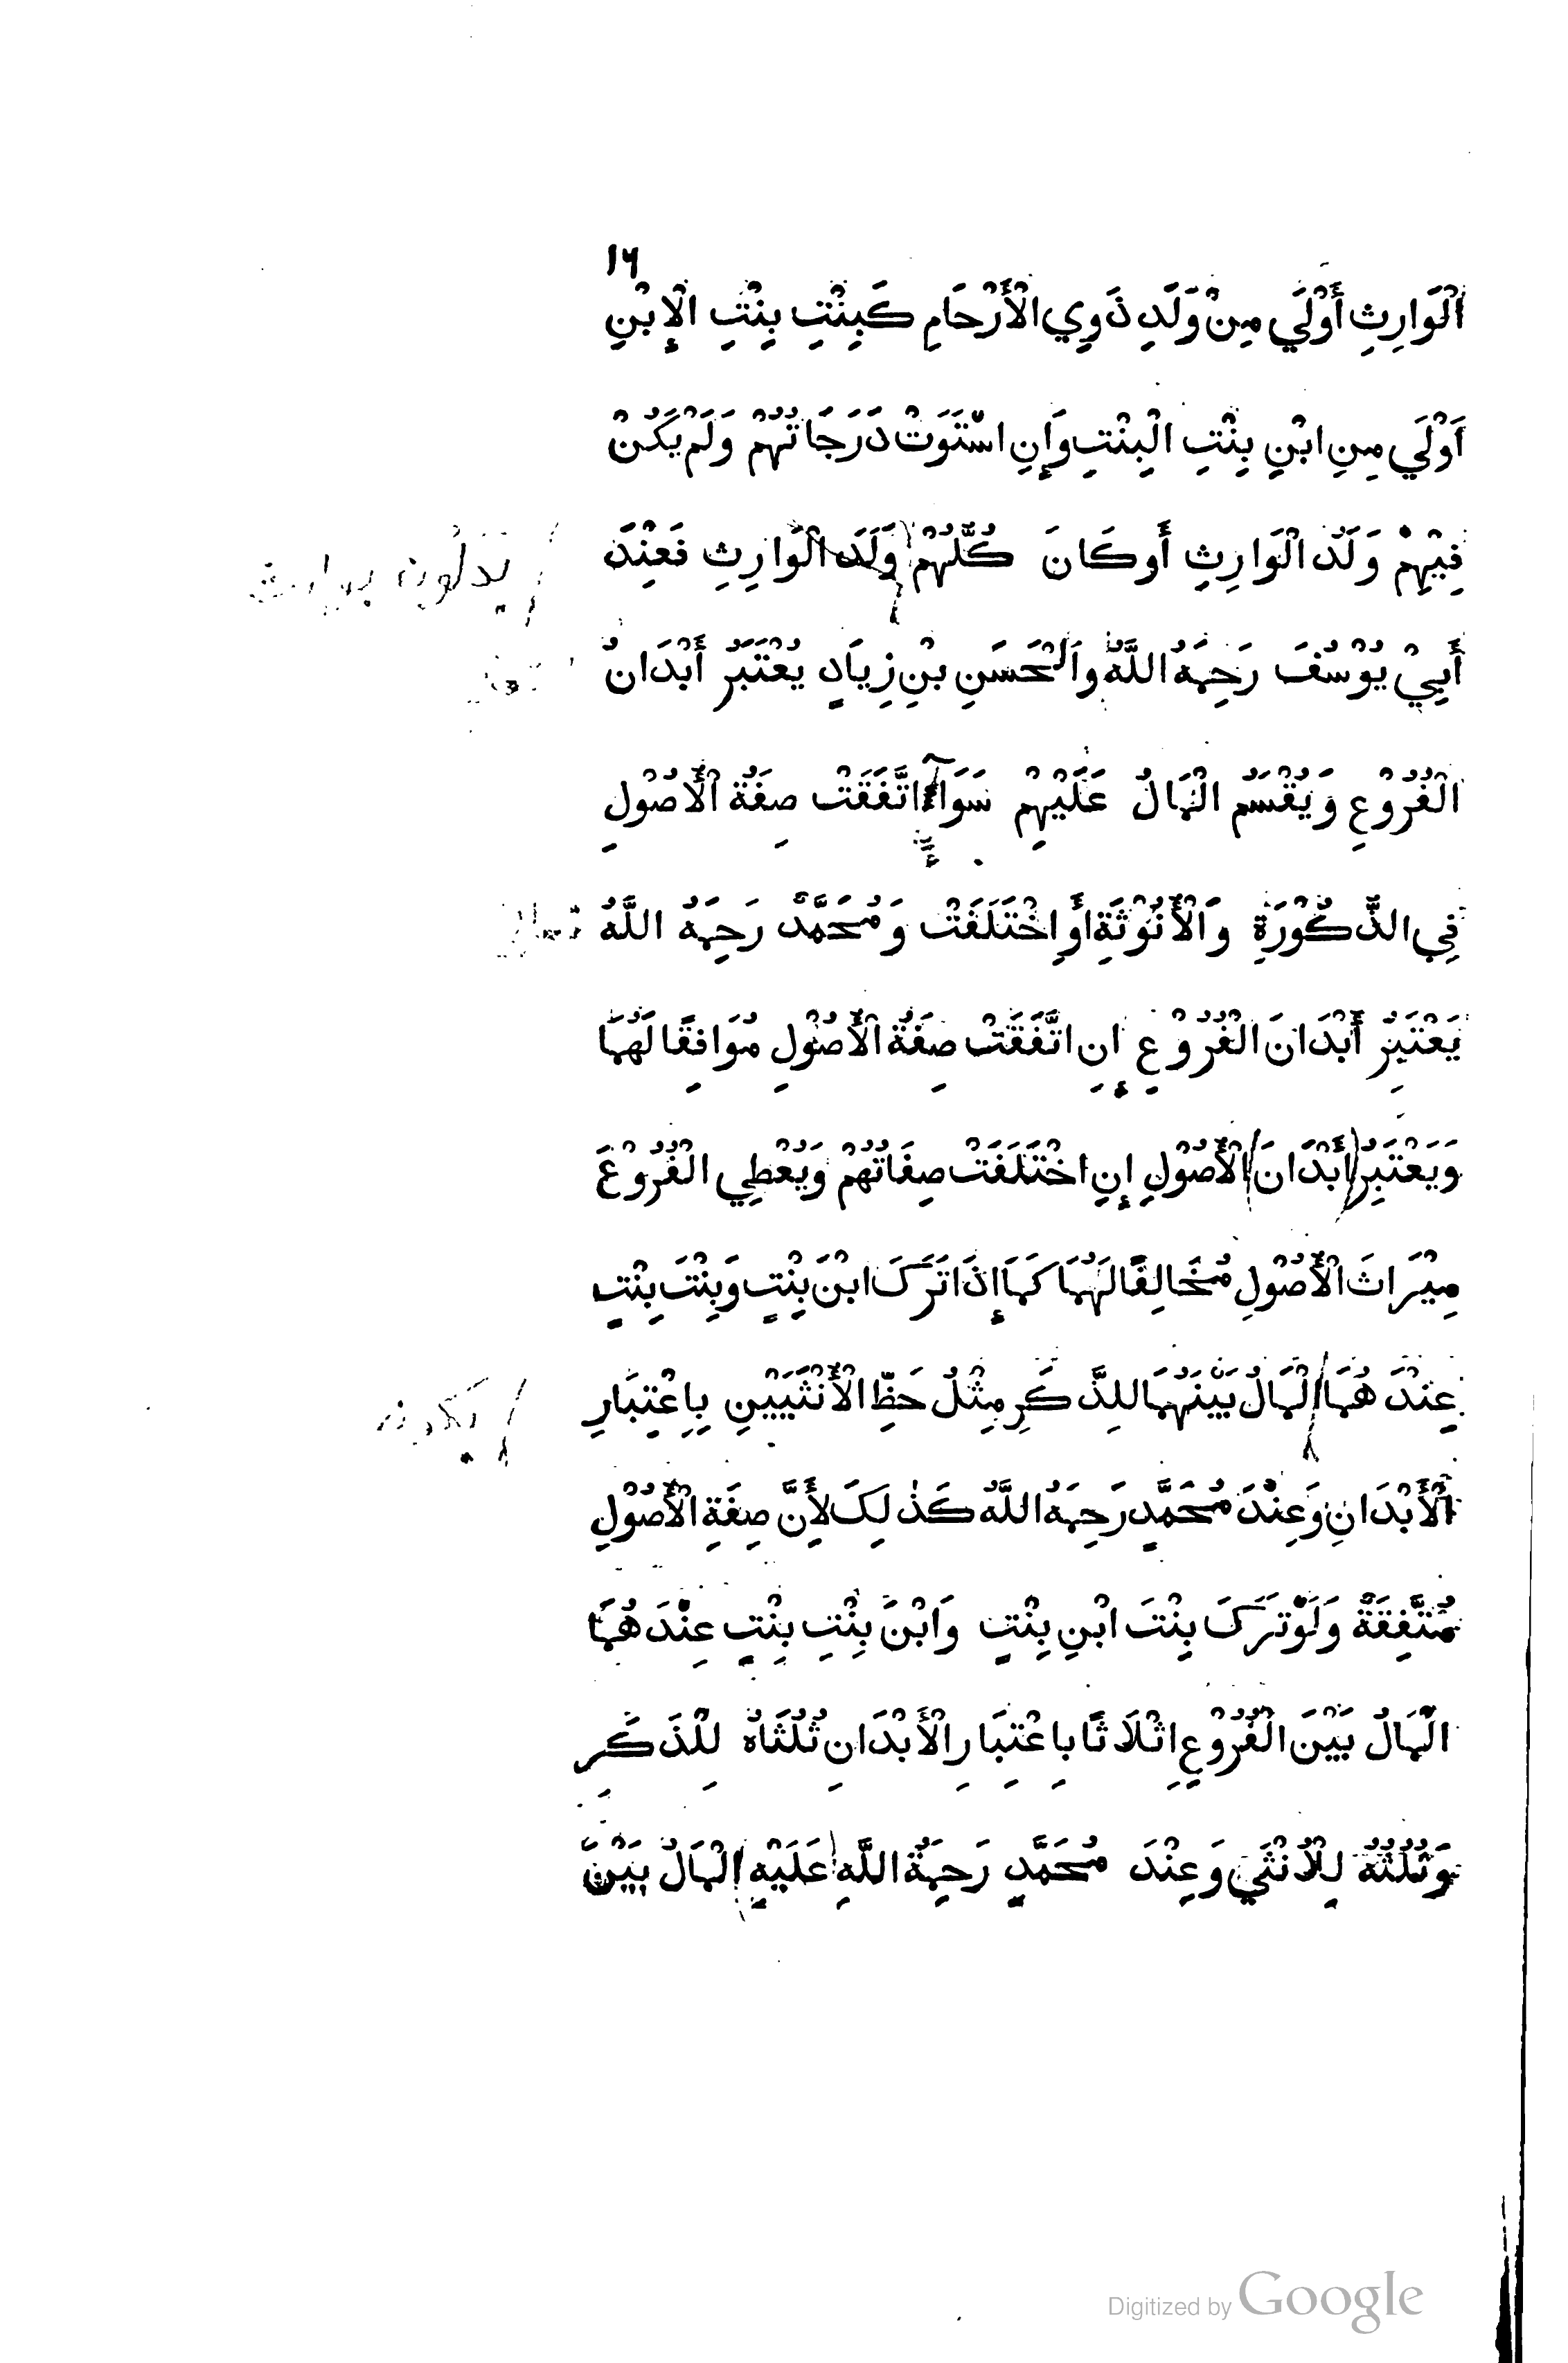 ١٦
اَلْوَارِثِ أَوْلَي مِنْ وَلَدِ ذَوِي الْأَرْحَامِ كَبِنْتِ بِنْتِ الْإِبْنِ
اَوْلَي مِنِ ابْنِ بِنْتِ الْبِنْتِ وَإِنِ اسْتَوَتْ دَرَجَاتُهُمْ وَلَمْ يَكُنْ
فِيْهِمْ وَلَدُ الْوَارِثِ أَوكَانَ كُلُّهُمْ وَلَدَ الْوَارِثِ فَعِنْدَ
يدلون بوارث
أَبِيْ يُوْسُفَ رَحِمَهُ اللَّهُ وَالْحَسَنِ بْنِ زِيَادٍ يُعْتَبَرُ أَبْدَانُ
الْفُرُوْعِ وَيُقْسَمُ الْمَالُ عَلَيْهِمْ سَوَآءٌ اتَّفَقَتْ صِفَةُ الْأُصُوْلِ
فِي الذُّكُوْرَةِ وَالْأُنُوْثَةِ أَوِ اخْتَلَفَتْ وَمُحَمَّدٌ رَحِمَهُ اللَّهُ
تعالي
يَعْتَبِرُ أَبْدَانَ الْفُرُوْعِ إِنِ اتَّفَقَتْ صِفَةُ الْأُصُوْلِ مُوَافِقًا لَهُمَا
وَيَعْتَبِرُ أَبْدَانَ الْأُصُوْلِ إِنِ اخْتَلَفَتْ صِفَاتُهُمْ وَيُعْطِي الْفُرُوْعَ
مِيْرَاثَ الْأُصُوْلِ مُخَالِفًا لَهُمَا كَمَا إِذَا تَرَكَ ابْنَ بِنْتٍ وَبِنْتَ بِنْتٍ
عِنْدَ هُمَا الْمَالُ بَيْنَهُمَا لِلذَّكَرِ مِثْلُ حَظِّ الْأُنْثَيَيْنِ بِاِعْتِبَارِ
يكون
الْأَبْدَانِ وَعِنْدَ مُحَمَّدٍ رَحِمَهُ اللَّهُ كَذٰلِكَ لِأَنَّ صِفَةِ الْأُصُوْلِ
مُتَّفِقَةٌ وَلَوْ تَرَكَ بِنْتَ ابْنِ بِنْتٍ وَابْنَ بِنْتِ بِنْتٍ عِنْدَ هُمَا
الْمَالُ بَيْنَ الْفُرُوْعِ اِثْلَاثًا بِاعْتِبَارِ الْأَبْدَانِ ثُلُثَاهُ لِلْذَكَرِ
وَثُلُثُهُ لِلْأُنْثَي وَعِنْدَ مُحَمَّدٍ رَحِمَةُ اللَّهِ عَلَيْهِ الْمَالُ بَيْنَ
Digitized by Google